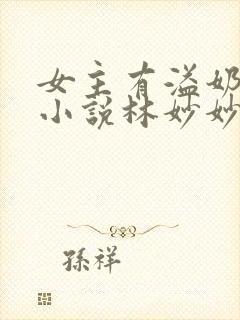 女主有溢奶
小說林妙妙
孫祥